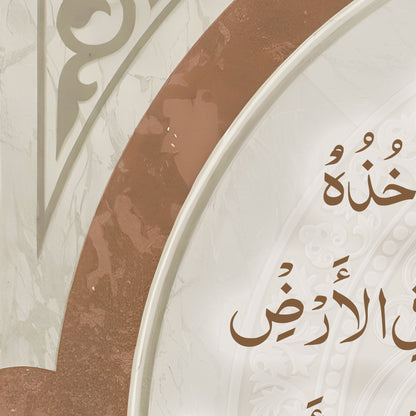 خُذُهُ
الأَرْضِ